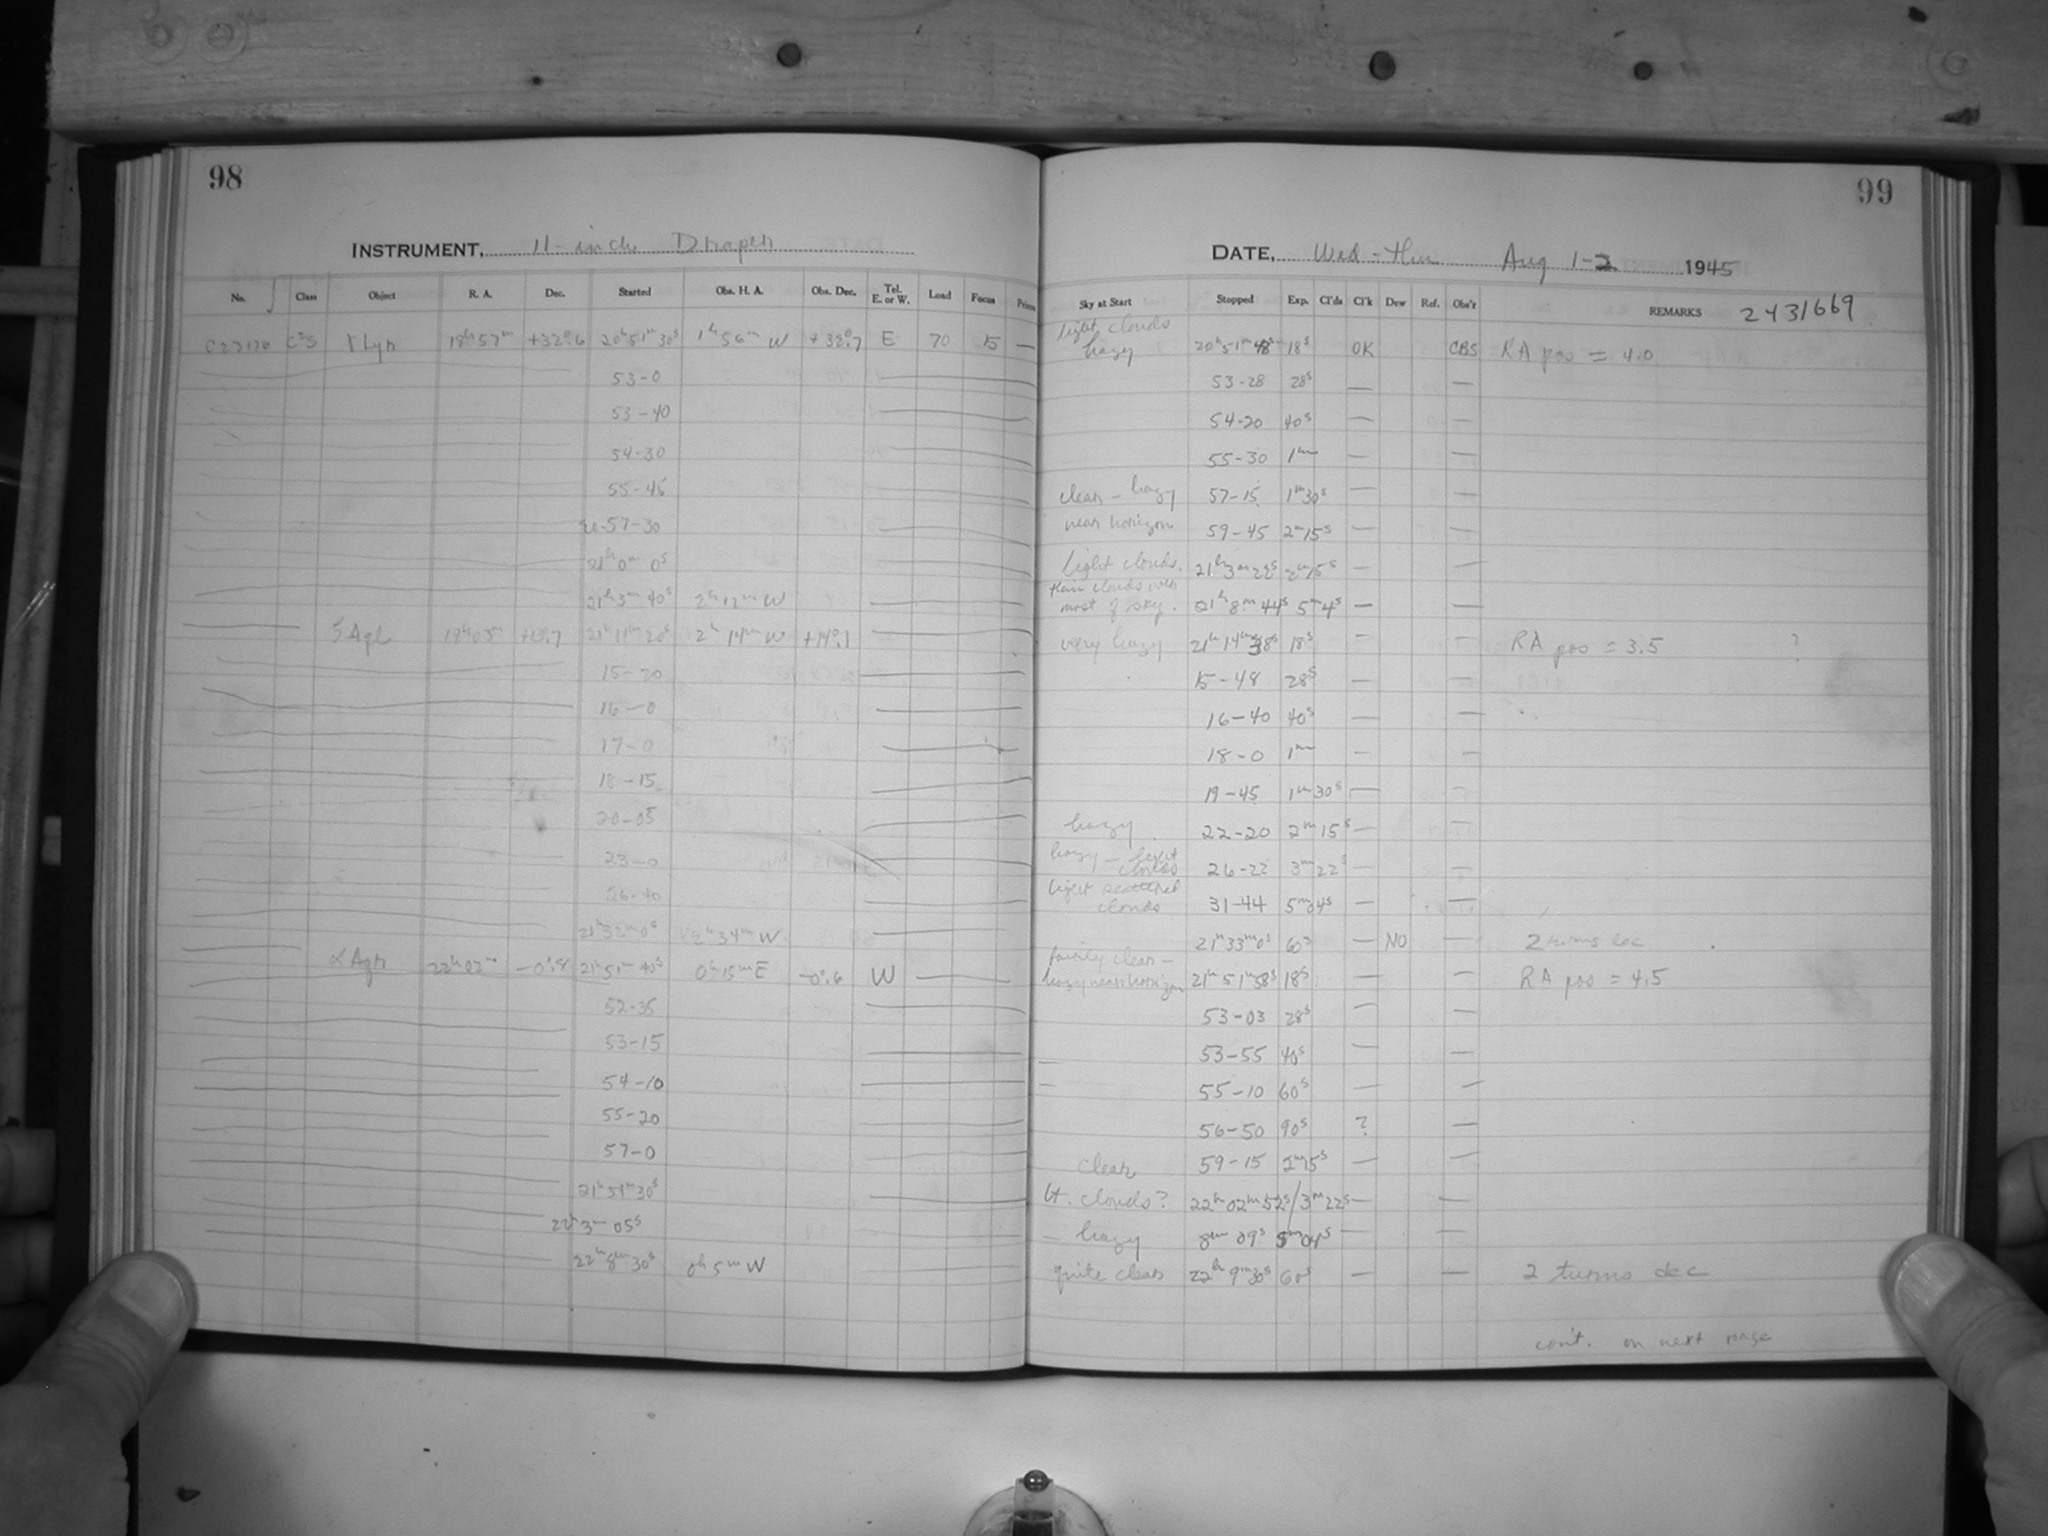 98
INSTRUMENT, 11-inch Draper
No. Class Object R. A. Dec. Started Obs. H. A. Obs. Dec. Tel. E. or W. Load Focus Prism
γ Lyr 18h57m +32°.6 20h51m30s 1h56m W +32°.7 E 70 15 —
53-0
53-40
54-30
55-45
20-57-30
21h0m0s
21h3m40s 2h12m W
ζ Aql 19h03m +13°.7 21h14m20s 2h14m W +14°.1
15-20
16-0
17-0
18-15
20-05
23-0
26-40
21h32m0s 2h34m W
α Aqr 22h02m -0°.8 21h51m40s 0h15m E -0°.6 W
52-35
53-15
54-10
55-20
57-0
21h59m30s
22h3m05s
22h8m30s 0h5m W
99
DATE, Wed-Thu Aug 1-2 1945
Sky at Start Stopped Exp. Cl'ds Cl'k Dew Ref. Obs'r REMARKS 2431669
light clouds
hazy 20h51m48s 18s OK CBS RA pos = 4.0
53-28 28s — —
54-20 40s — —
55-30 1m — —
clear - hazy 57-15 1m30s — —
near horizon 59-45 2m15s — —
light clouds. 21h3m22s — —
thin clouds over
most of sky. 21h8m44s 5m4s — —
very hazy 21h14m38s 18s — — RA pos = 3.5 ?
15-48 28s — —
16-40 40s — —
18-0 1m — —
19-45 1m30s — —
hazy 22-20 2m15s — —
hazy - light
clouds 26-22 3m22s — —
light scattered
clouds 31-44 5m04s — —
21h33m0s 60s — NO — 2 turns dec
fairly clear -
hazy near horizon 21h51m58s 18s — — RA pos = 4.5
53-03 28s — —
53-55 40s — —
55-10 60s — —
56-50 90s ? —
clear 59-15 2m15s — —
lt. clouds? 22h02m52s/3m22s — —
hazy 8m09s 5m04s — —
quite clear 22h9m30s 60s — — 2 turns dec
con't. on next page